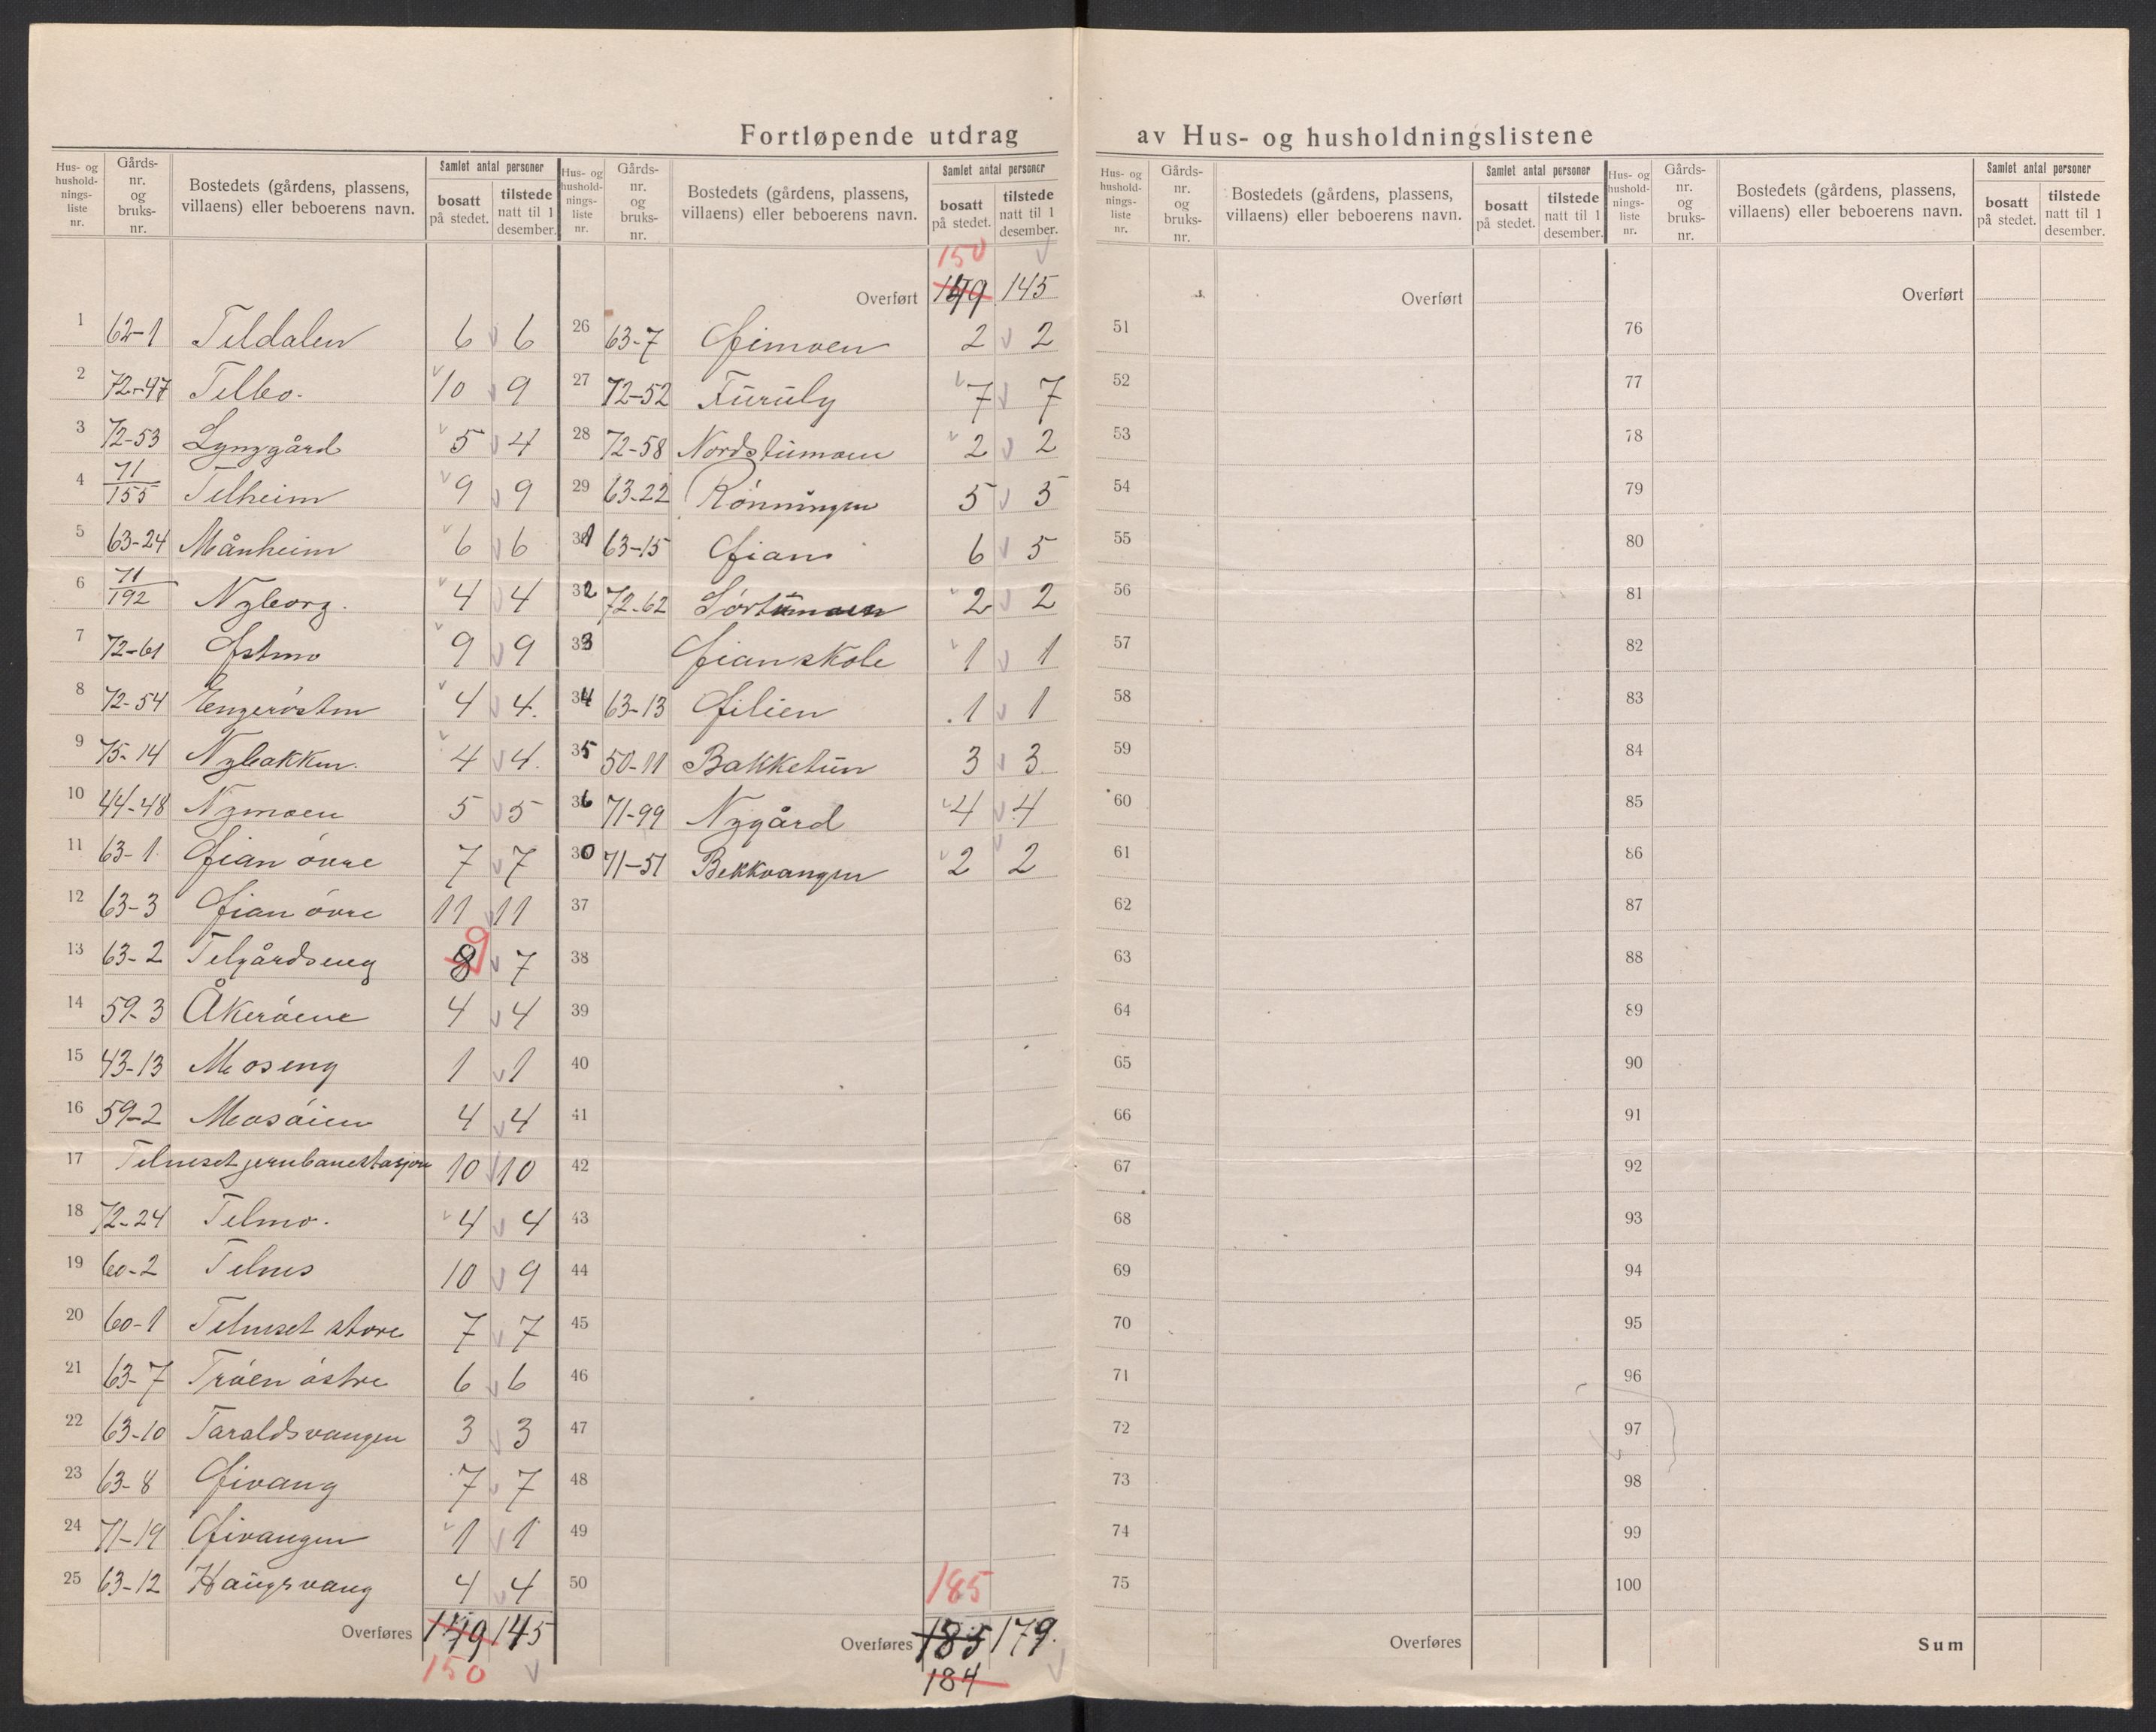 Fortløpende utdrag av Hus- og husholdningslistene
Hus- og hushold- nings- liste nr. Gårds- nr. og bruks- nr. Bostedets (gårdens, plassens, villaens) eller beboerens navn. Samlet antal personer bosatt på stedet. tilstede natt til 1 desember.
1 62-1 Teldalen 6 6
2 72-47 Telbo. 10 9
3 72-53 Lynggård 5 4
4 71/155 Telheim 9 9
5 63-24 Månheim 6 6
6 71/192 Nyborg. 4 4
7 72-61 Østmo 9 9
8 72-54 4 4.
9 75-14 Nybakken. 4 4.
10 44-48 Nymoen 5 5
11 63-1 øvre 7 7
12 63-3 øvre 11 11
13 63-2 Telgårdseng 8 9 7
14 59-3 Åkerøene 4 4
15 43-13 Moseng 1 1
16 59-2 Mosøien 4 4
17 Telneset jernbanestasjon 10 10
18 72-24 Telmo. 4 4
19 60-2 Telnes 10 9
20 60-1 Telneset store 7 7
21 63-7 Trøen østre 6 6
22 63-10 Taraldsvangen 3 3
23 63-8 7 7
24 71-19 1 1
25 63-12 Haugsvang 4 4
Overføres 149 145
150
Hus- og hushold- nings- liste nr. Gårds- nr. og bruks- nr. Bostedets (gårdens, plassens, villaens) eller beboerens navn. Samlet antal personer bosatt på stedet. tilstede natt til 1 desember.
150
Overført 149 145
26 63-7 2 2
27 72-52 Furuly 7 7
28 72-58 Nordstumoen 2 2
29 63-22 Rønningen 5 5
31 63-15 6 5
32 72-62 Sørtumoen 2 2
33 1 1
34 63-13 1 1
35 50-11 Bakketun 3 3
36 71-99 Nygård 4 4
30 71-51 Bekkvangen 2 2
37
38
39
40
41
42
43
44
45
46
47
48
49
50
185
Overføres 185 179.
184
Hus- og hushold- nings- liste nr. Gårds- nr. og bruks- nr. Bostedets (gårdens, plassens, villaens) eller beboerens navn. Samlet antal personer bosatt på stedet. tilstede natt til 1 desember.
Overført
51
52
53
54
55
56
57
58
59
60
61
62
63
64
65
66
67
68
69
70
71
72
73
74
75
Overføres
Hus- og hushold- nings- liste nr. Gårds- nr. og bruks- nr. Bostedets (gårdens, plassens, villaens) eller beboerens navn. Samlet antal personer bosatt på stedet. tilstede natt til 1 desember.
Overført
76
77
78
79
80
81
82
83
84
85
86
87
88
89
90
91
92
93
94
95
96
97
98
99
100
Sum